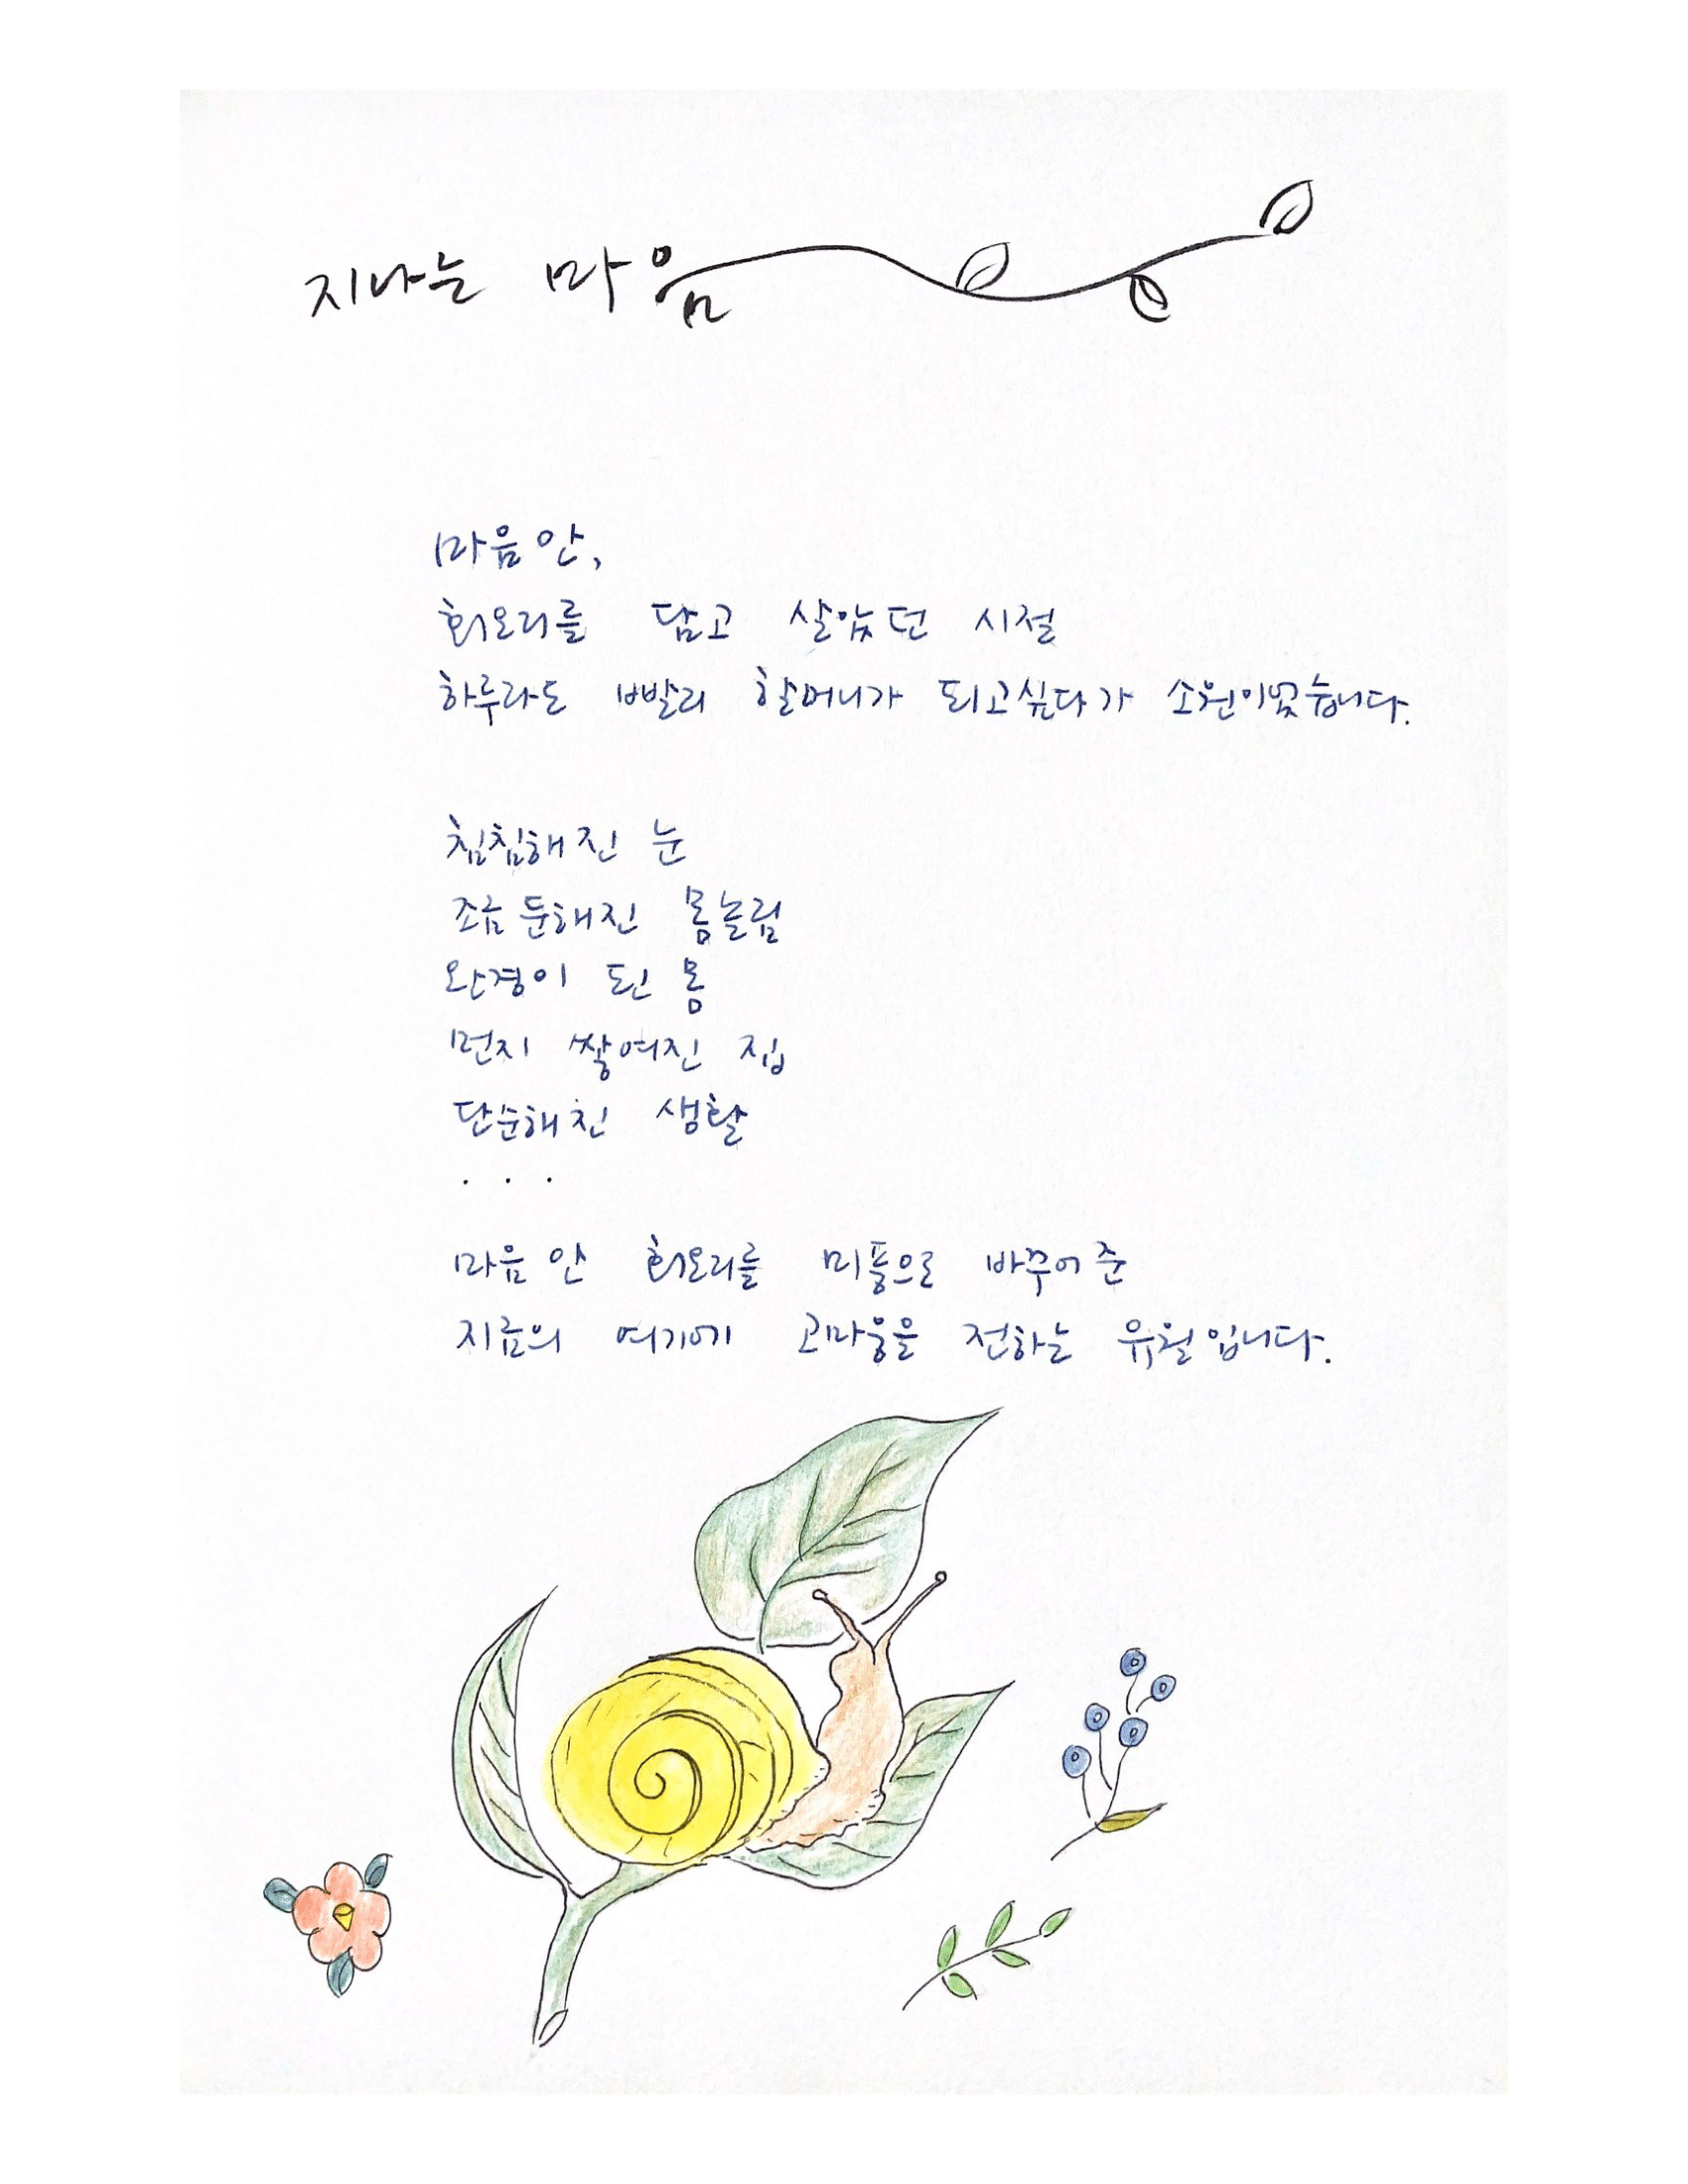 지나는 마음
마음 안,
회오리를 담고 살았던 시절
하루라도 빨리 할머니가 되고싶다가 소원이었습니다.
침침해진 눈
조금 둔해진 몸놀림
완경이 된 몸
먼지 쌓여진 집
단순해진 생활
. . .
마음 안 회오리를 미풍으로 바꾸어 준
지금의 여기에 고마움을 전하는 유월입니다.